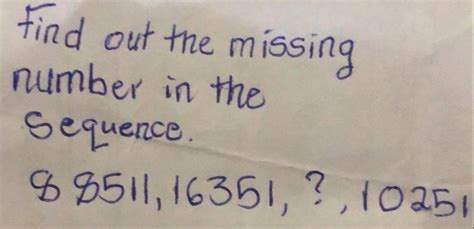 Find out the missing
number in the
Sequence.
8 8511, 16351, ?, 10251